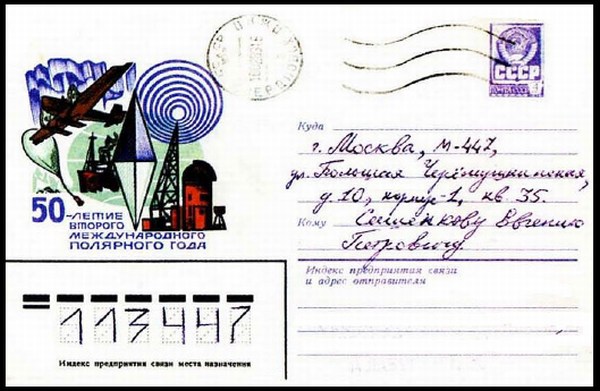 СССР
50-ЛЕТИЕ
ВТОРОГО
МЕЖДУНАРОДНОГО
ПОЛЯРНОГО ГОДА
Куда
г. Москва, М-447,
ул. Большая Черёмушкинская,
д. 10, корпус-1, кв. 35.
Кому
Евгению
Петровичу
Индекс предприятия связи
и адрес отправителя
113447
Индекс предприятия связи места назначения